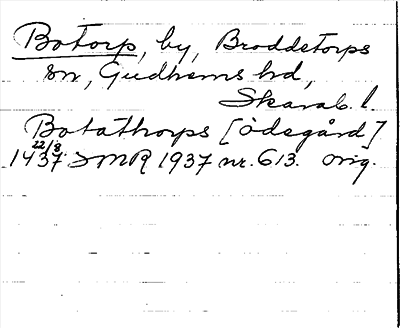 Botorp, by, Broddetorps
sn, Gudhems hd,
Skarab. l.
Botathorps [ödegård]
22/8
1437. SMR 1937 nr. 613. orig.